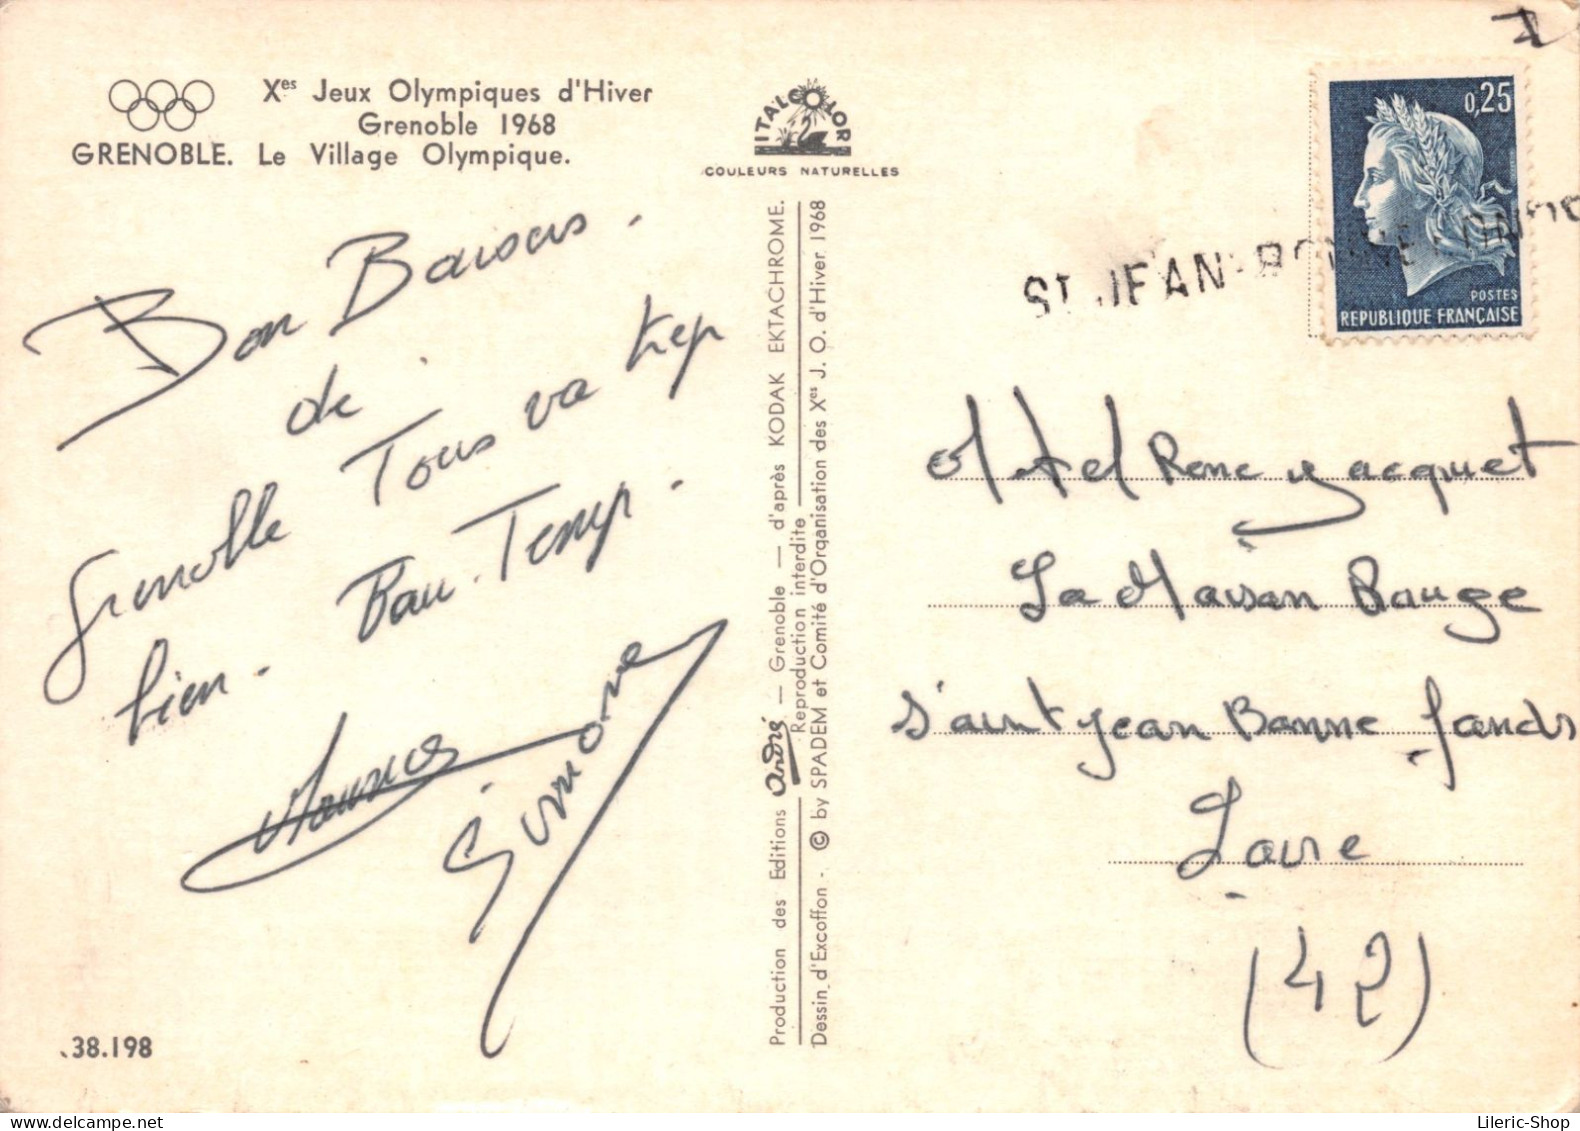 Xes Jeux Olympiques d'Hiver
Grenoble 1968
GRENOBLE. Le Village Olympique.
ITALCOLOR
COULEURS NATURELLES
0,25
POSTES
REPUBLIQUE FRANÇAISE
ST JEAN BONNEFONDS
Bon Baisers.
de
Grenoble Tous va trep
bien. Bau Temp.
Simone
Production des Editions André — Grenoble — d'après KODAK EKTACHROME.
Reproduction interdite
Dessin d'Excoffon - © by SPADEM et Comité d'Organisation des Xes J. O. d'Hiver 1968
Hotel Rene Jacquet
La Maison Rouge
Saint Jean Bonne fonds
Loire
(42)
38.198
Lileric-Shop